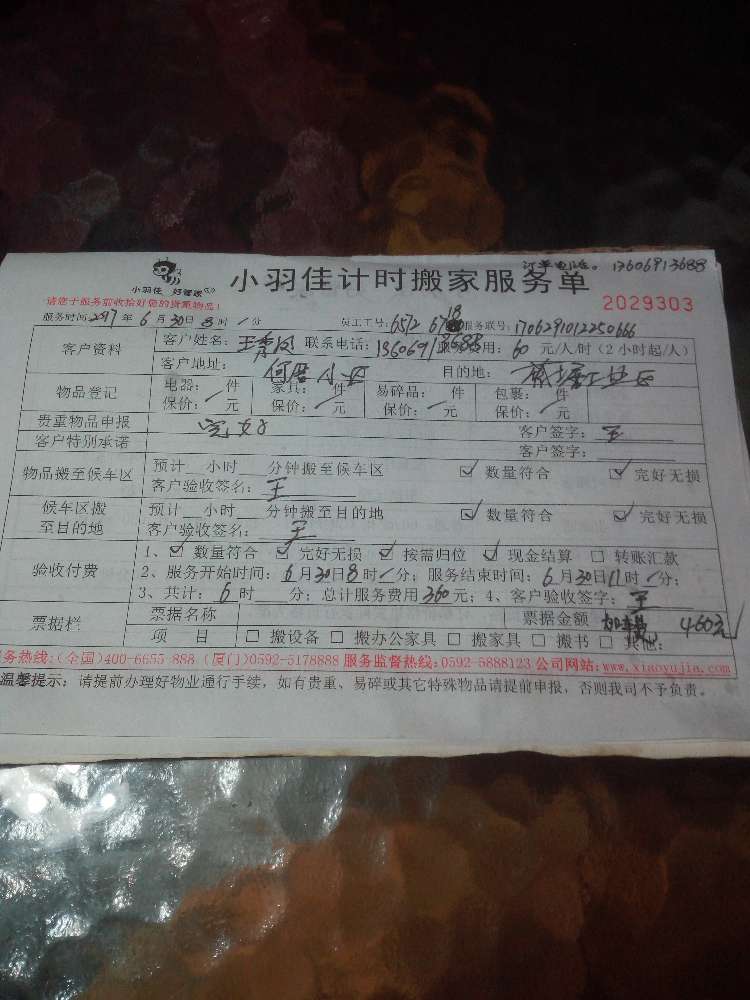 订单电话。13606913688
小羽佳 好管家
小羽佳计时搬家服务单
请您于服务前收拾好您的贵重物品!
2029303
服务时间2017年6月30日8时/分 员工工号:6512 服务联号:1706291012250666
客户资料 客户姓名: 联系电话:13606913688 服务费用:60元/人/时(2小时起/人)
客户地址:何厝小区 目的地:工业区
物品登记 电器: 件 家具: 件 易碎品: 件 包裹: 件
保价:/元 保价:/元 保价:/元 保价:/元
贵重物品申报 完好 客户签字:王
客户特别承诺 客户签字:
物品搬至候车区 预计 小时 分钟搬至候车区 ☑数量符合 ☑完好无损
客户验收签名:王
候车区搬至目的地 预计 小时 分钟搬至目的地 ☑数量符合 ☑完好无损
客户验收签名:王
验收付费 1、☑数量符合 ☑完好无损 ☑按需归位 ☑现金结算 □转账汇款
2、服务开始时间:6月30日8时/分;服务结束时间:6月30日11时/分;
3、共计:6时 分;总计服务费用360元;4、客户验收签字:王
票据栏 票据名称 票据金额 460元
项 目 □搬设备 □搬办公家具 □搬家具 □搬书 □其他:
服务热线:(全国)400-6655-888 (厦门)0592-5178888 服务监督热线:0592-5888123 公司网站:www.xiaoyujia.com
温馨提示:请提前办理好物业通行手续,如有贵重、易碎或其它特殊物品请提前申报,否则我司不予负责。